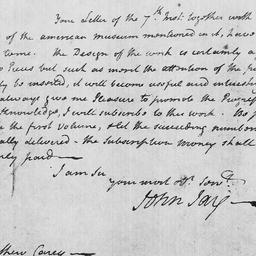 Your Letter of the 7th Inst. together with
of the american museum mentioned in it, have
come. The Design of the work is certainly a
Pieces but such as merit the attention of the p
ly be inserted, it will become useful and interesti
always give me Pleasure to promote the Progress
Knowledge, I will subscribe to the work. Be p
me the first Volume, & let the succeeding numbers
ally delivered - the Subscription money shall
ly paid -
I am Sir
your most Obt. Servt.
John Jay
thew Carey